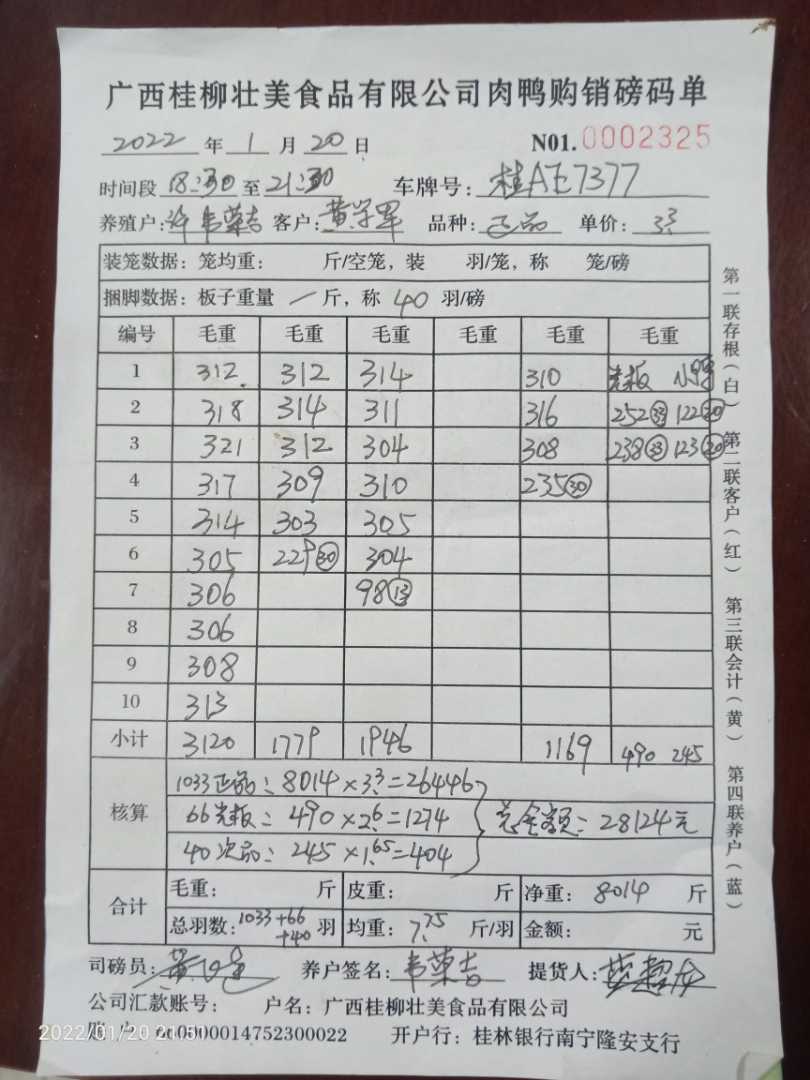 广西桂柳壮美食品有限公司肉鸭购销磅码单
2022 年 1 月 20 日 N01. 0002325
时间段 18:30 至 21:30 车牌号: 桂AE7377
养殖户: 许 韦荣吉 客户: 黄学军 品种: 正品 单价: 3.3
装笼数据: 笼均重: 斤/空笼, 装 羽/笼, 称 笼/磅
捆脚数据: 板子重量 / 斤, 称 40 羽/磅
编号 毛重 毛重 毛重 毛重 毛重 毛重
1 312 312 314 310 光板
2 318 314 311 316 252㉝ 122⑳
3 321 312 304 308 238㉝ 123⑳
4 317 309 310 235㉚
5 314 303 305
6 305 229㉚ 304
7 306 98⑬
8 306
9 308
10 313
小计 3120 1779 1946 1169 490 245
核算
1033正品: 8014×3.3=26446
66光板: 490×2.6=1274 总金额: 28124元
40次品: 245×1.65=404
合计
毛重: 斤 皮重: 斤 净重: 8014 斤
总羽数: 1033+66+40 羽 均重: 7.75 斤/羽 金额: 元
司磅员: 养户签名: 韦荣吉 提货人:
公司汇款账号: 户名: 广西桂柳壮美食品有限公司
账户 00000014752300022 开户行: 桂林银行南宁隆安支行
2022/01/20
第一联存根(白) 第二联客户(红) 第三联会计(黄) 第四联养户(蓝)